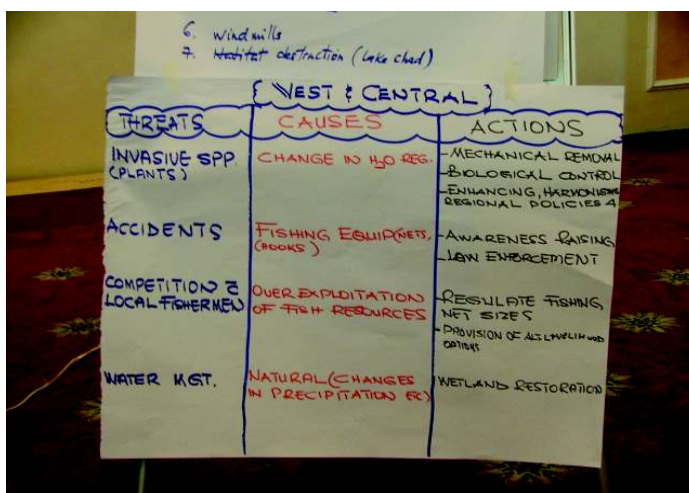 6. windmills
7. Habitat destruction (Lake Chad)
{ WEST & CENTRAL }
THREATS
CAUSES
ACTIONS
INVASIVE SPP.
(PLANTS)
CHANGE IN H2O REG.
- MECHANICAL REMOVAL
- BIOLOGICAL CONTROL
- ENHANCING, HARMONISING
REGIONAL POLICIES
ACCIDENTS
FISHING EQUIP(NETS,
(HOOKS)
- AWARENESS RAISING
- LAW ENFORCEMENT
COMPETITION C
LOCAL FISHERMEN
OVER EXPLOITATION
OF FISH RESOURCES
- REGULATE FISHING,
NET SIZES
- PROVISION OF ALT. LIVELIHOOD
OPTIONS
WATER MGT.
NATURAL (CHANGES
IN PRECIPITATION ETC)
WETLAND RESTORATION